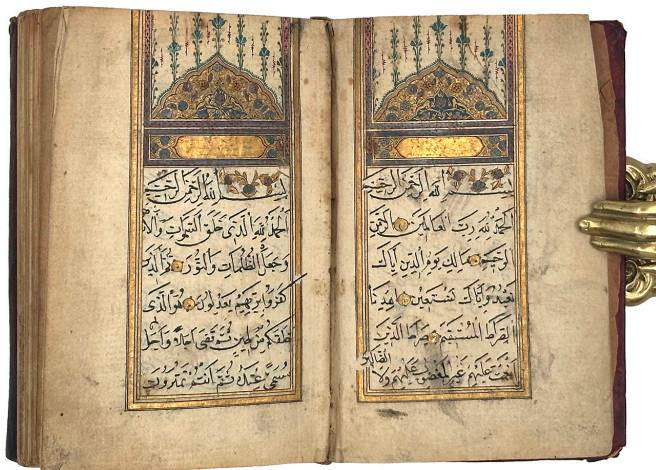 بسم الله الرحمن الرحيم
الحمد لله رب العالمين الرحمن
الرحيم مالك يوم الدين اياك
نعبد واياك نستعين اهدنا
الصراط المستقيم صراط الذين
انعمت عليهم غير المغضوب عليهم ولا
الضالين
بسم الله الرحمن الرحيم
الحمد لله الذي خلق السموات والارض
وجعل الظلمات والنور ثم الذين
كفروا بربهم يعدلون هو الذي
خلقكم من طين ثم قضى اجلا واجل
مسمى عنده ثم انتم تمترون